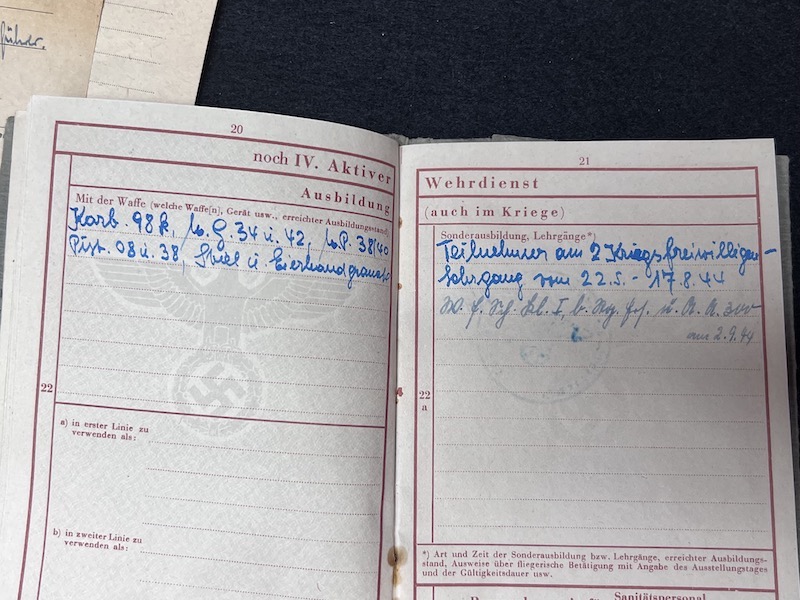 führer.
20
noch IV. Aktiver
Ausbildung
Mit der Waffe (welche Waffe[n], Gerät usw., erreichter Ausbildungsstand)
Karb. 98k, M.G. 34 u. 42, M.P. 38/40
Pist. 08 u. 38, Stiel u Eierhandgranate
22
a) in erster Linie zu
verwenden als:
b) in zweiter Linie zu
verwenden als:
21
Wehrdienst
(auch im Kriege)
Sonderausbildung, Lehrgänge*)
Teilnehmer am 2 Kriegsfreiwilligen-
Lehrgang vom 22.5. - 17.8.44
Kl. I, A. A. 300
am 2.9.44
22
a
*) Art und Zeit der Sonderausbildung bzw. Lehrgänge, erreichter Ausbildungs-
stand, Ausweise über fliegerische Betätigung mit Angabe des Ausstellungstages
und der Gültigkeitsdauer usw.
Sanitätspersonal